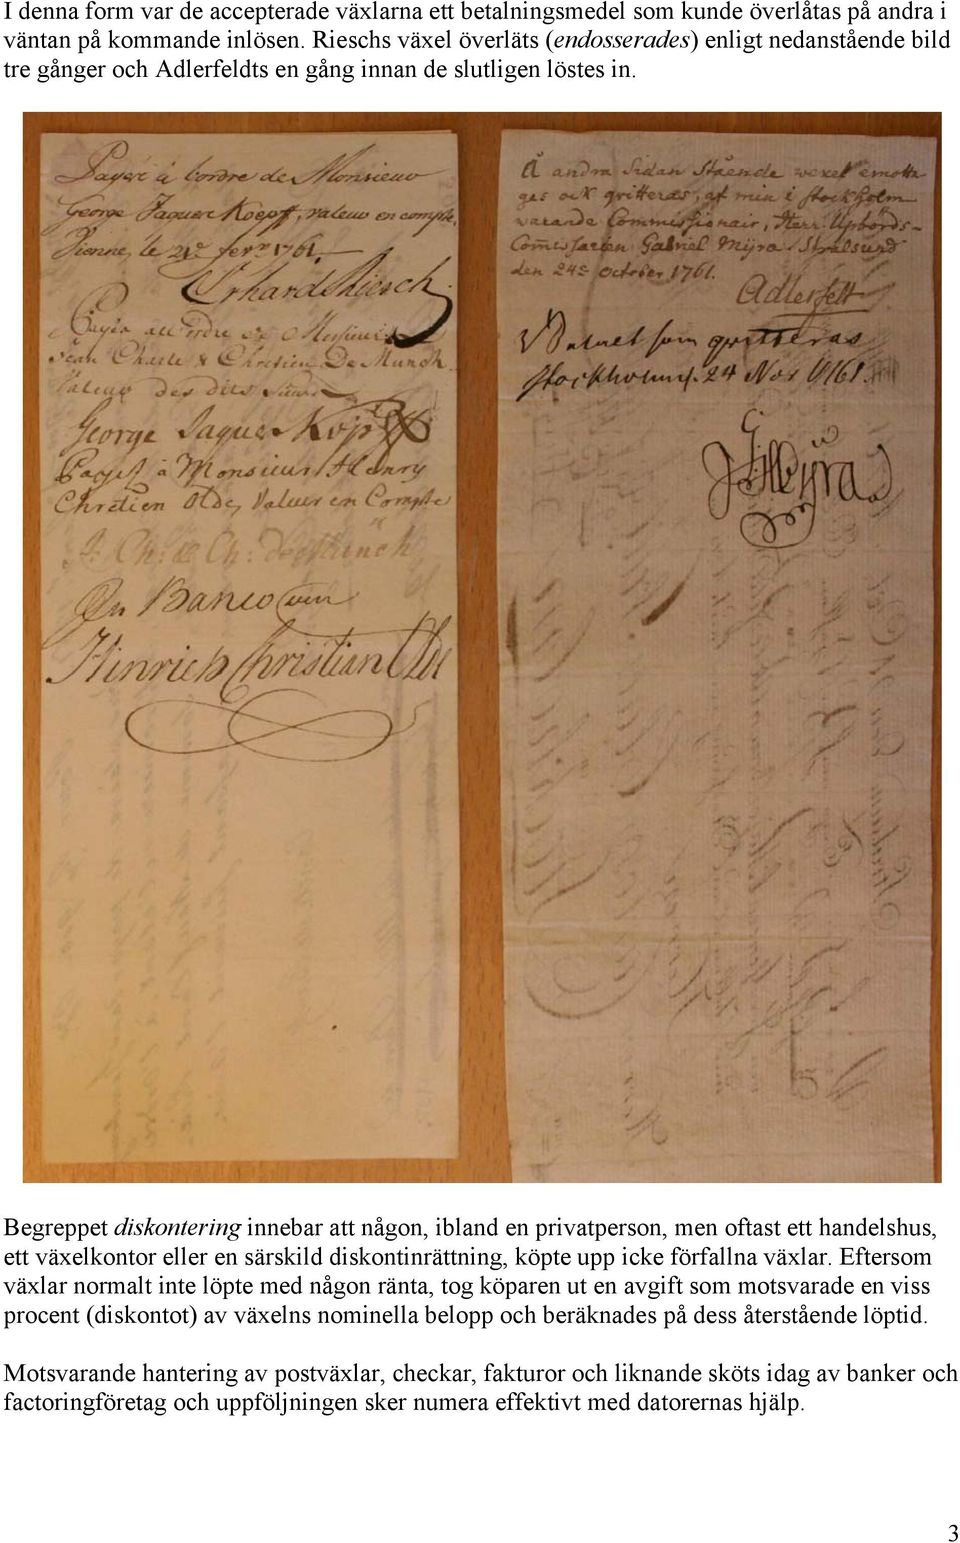 I denna form var de accepterade växlarna ett betalningsmedel som kunde överlåtas på andra i
väntan på kommande inlösen. Rieschs växel överläts (endosserades) enligt nedanstående bild
tre gånger och Adlerfeldts en gång innan de slutligen löstes in.
Payé à lordre de Monsieur
George Jaques Koepff, valeur en compte.
Vienne, le 21e fevr 1761.
Erhard Riesch
Payéz à l'ordre de Messieurs
Jean Charle & Chretien De Munch
Valeur des dits Sieurs
George Jaques Köpff
Payes à Monsieur Henry
Chretien Olde, Valeur en Compte
J: Ch: & Ch: de Münch
In Banco
Hinrich Christian Olde
Å andra Sidan Stående wexel emotta
ges ock qvitteras, af min i Stockholm
warande Commissionair, Herr Upbörds-
Commissarien Gabriel Mijra. Stralsund
den 24e October 1761.
Adlerfelt
Valuet som qvitteras
Stockholm. 24 Nov 1761.
G Mijra
Begreppet diskontering innebar att någon, ibland en privatperson, men oftast ett handelshus,
ett växelkontor eller en särskild diskontinrättning, köpte upp icke förfallna växlar. Eftersom
växlar normalt inte löpte med någon ränta, tog köparen ut en avgift som motsvarade en viss
procent (diskontot) av växelns nominella belopp och beräknades på dess återstående löptid.
Motsvarande hantering av postväxlar, checkar, fakturor och liknande sköts idag av banker och
factoringföretag och uppföljningen sker numera effektivt med datorernas hjälp.
3